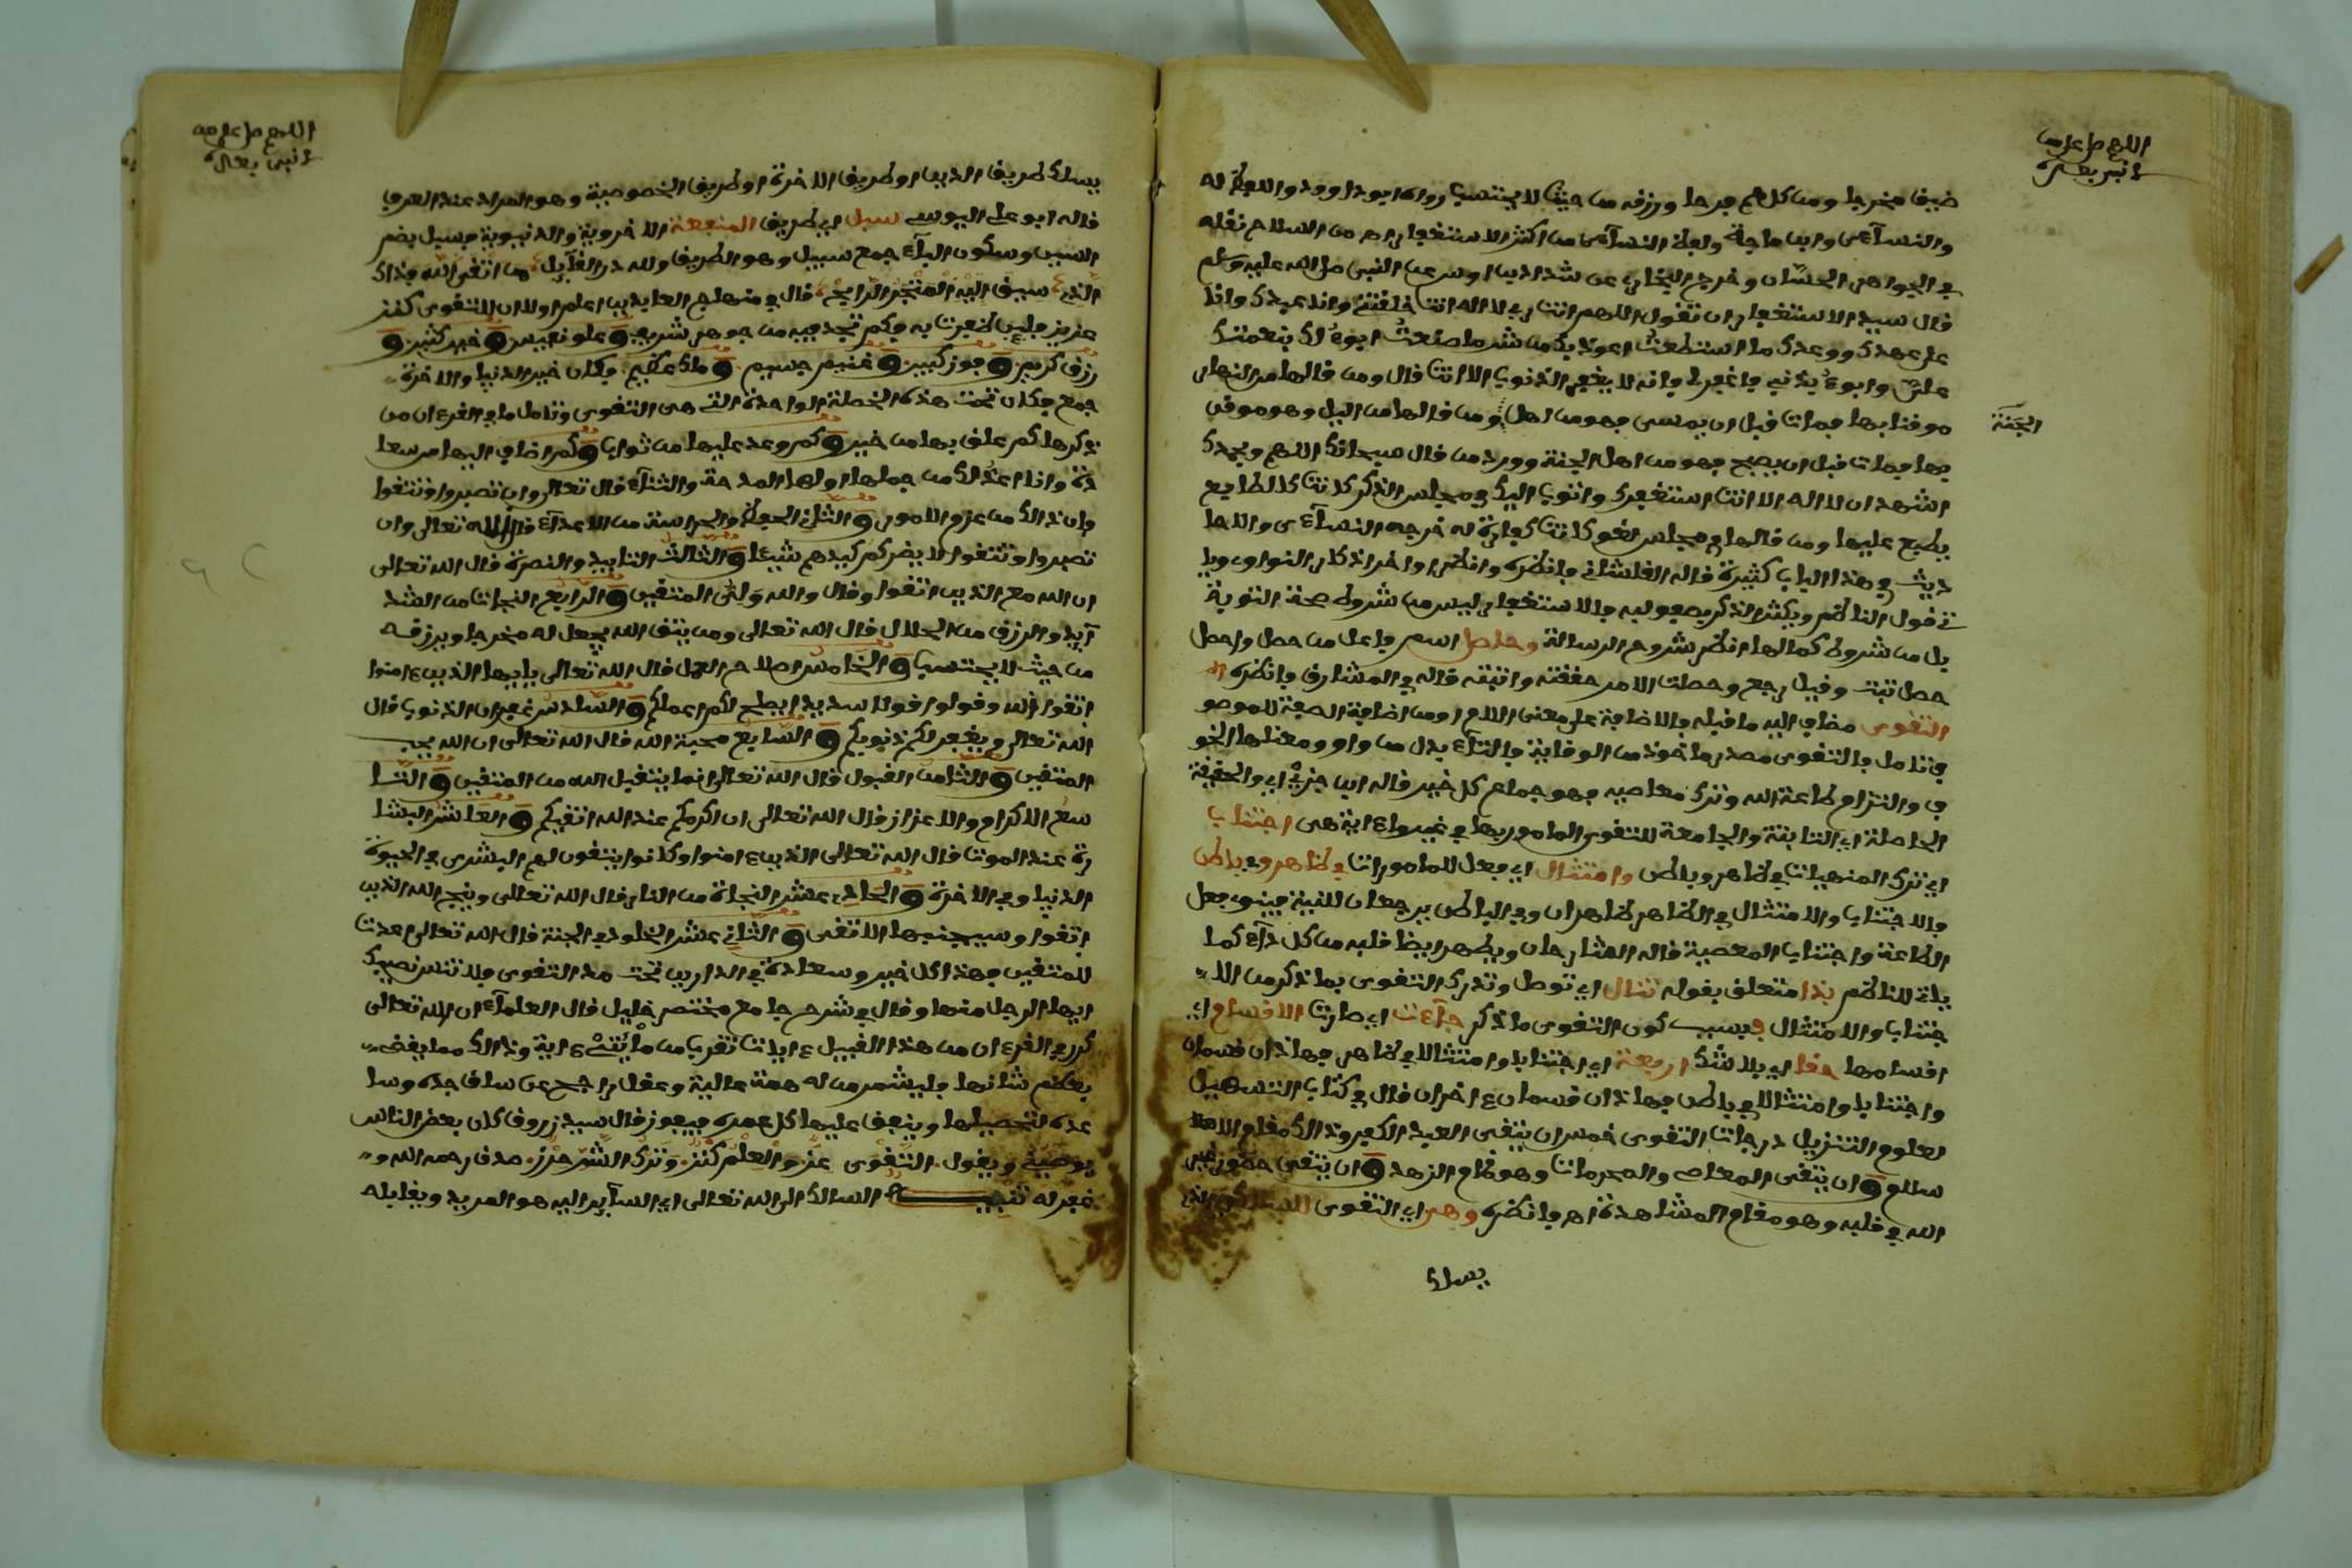 اللهم صل على
النبي بعدد
ضيق مخرجا ومن كل هم فرجا ورزقه من حيث لا يحتسب رواه ابو داوود واللفظ له
والنسآءى وابن ماجة ولفظ النسآءى من اكثر الاستغفار اهـ من السلاح نقله
في الجواهر الحسان وخرج البخاري عن شداد بن اوس عن النبي صلى الله عليه وسلم
قال سيد الاستغفار ان تقول اللهم انت ربي لا اله الا انت خلقتني وانا عبدك وانا
على عهدك ووعدك ما استطعت اعوذ بك من شر ما صنعت ابوء لك بنعمتك
علي وابوء بذنبي فاغفر لي فإنه لا يغفر الذنوب الا انت قال ومن قالها من النهار
موقنا بها فمات قبل ان يمسي فهو من اهل ومن قالها من اليل وهو موقن
الجنة
بها فمات قبل ان يصبح فهو من اهل الجنة وورد من قال سبحانك اللهم وبحمدك
اشهد ان لا اله الا انت استغفرك واتوب اليك في مجلس الذكر كانت كالطابع
يطبع عليها ومن قالها في مجلس لغو كانت كفارة له خرجه النسآءى والاحا
ديث في هذا الباب كثيرة قاله القلشاني وانظره وانظر اواخر اذكار النواوي ويا
تي قول الناظم ويكثر الذكر بصفو لبه والاستغفار ليس من شروط صحة التوبة
بل من شروط كمالها انظر شروح الرسالة وحاصل اسم فاعل من حصل واحصل
حصل تثبت وقيل رجع وحصلت الامر حققته واثبته قاله في المشارق وانظره اهـ
التقوى مضاف اليه ما قبله والاضافة على معنى اللام او من اضافة الصفة للموصو
ف تامل والتقوى مصدر ماخوذ من الوقاية والتآء بدل من واو ومعناها الخو
ف والتزام طاعة الله وترك معاصيه فهو جماع كل خير قاله ابن جزي اي والحقيقة
الحاصلة اي الثابتة والجامعة للتقوى المامور بها في غير ما ءاية هي اجتناب
اي ترك المنهيات في ظاهر وباطن وامتثال اي فعل للمامورات في ظاهر وباطن
والاجتناب والامتثال في الظاهر ظاهران وفي الباطن يرجعان للنية فينوي فعل
الطاعة واجتناب المعصية قاله الشارحان ويطهر ايضا قلبه من كل دآء كما
ياتي للناظم بذا متعلق بقوله تنال اي توصل وتدرك التقوى بما ذكر من الا
جتناب والامتثال فبسبب كون التقوى ما ذكر جآءت اي صارت الاقسام اي
اقسامها حقا اي بلا شك اربعة اي اجتنابا وامتثالا في ظاهر فهاذان قسمان
واجتنابا وامتثالا في باطن فهاذان قسمان ءاخران قال في كتاب التسهيل
لعلوم التنزيل درجات التقوى خمس ان يتقى العبد الكفر وذالك مقام الاسلا
و ان يتقى المعاصي والمحرمات وهو مقام الزهد و ان يتقى حضور غير
الله في قلبه وهو مقام المشاهدة اهـ وانظره وهي اي التقوى للسالك الذي
يسلك
اللهم صل على
النبي بعدد
يسلك طريق الدين او طريق الاخرة او طريق الخصوصية وهو المراد عند العرف
قاله ابو علي اليوسي سبل اي طريق المنفعة الاخروية والدنيوية وسبل بضم
السين وسكون البآء جمع سبيل وهو الطريق ولله در القآئل من اتقى الله فذاك
الذي سيق اليه المتجر الرابح قال في منهاج العابدين اعلم اولا ان التقوى كنز
عزيز فلئن ظفرت به فكم تجد فيه من جوهر شريف و علو نفيس و خير كثير و
رزق كريم و فوز كبير و غنم جسيم و ملك عظيم فكان خير الدنيا والاخرة
جمع فكان تحت هذه الخصلة الواحدة التي هي التقوى وتامل ما في القرءان من
ذكرها كم علق بها من خير و كم وعد عليها من ثواب و كم اضاف اليها من سعا
دة وانا اعد لك من جملها اولها المدحة والثنآء قال تعالى وان تصبروا وتتقوا
فإن ذالك من عزم الامور و الثاني الحفظ والحراسة من الاعدآء قال الله تعالى وان
تصبروا وتتقوا لا يضركم كيدهم شيئا و الثالث التاييد والنصرة قال الله تعالى
ان الله مع الذين اتقوا وقال والله ولي المتقين و الرابع النجات من الشد
آئد والرزق من الحلال قال الله تعالى ومن يتق الله يجعل له مخرجا ويرزقه
من حيث لا يحتسب و الخامس اصلاح العمل قال الله تعالى يايها الذين ءامنوا
اتقوا الله وقولوا قولا سديدا يصلح لكم اعملكم و السادس غفران الذنوب قال
الله تعالى ويغفر لكم ذنوبكم و السابع محبة الله قال الله تعالى ان الله يحب
المتقين و الثامن القبول قال الله تعالى انما يتقبل الله من المتقين و التا
سع الاكرام والاعزاز قال الله تعالى ان اكرمكم عند الله اتقيكم و العاشر البشا
رة عند الموت قال الله تعالى الذين ءامنوا وكانوا يتقون لهم البشرى في الحيوة
الدنيا وفي الاخرة و الحادي عشر النجاة من النار قال الله تعالى وينجي الله الذين
اتقوا وسيجنبها الاتقى و الثاني عشر الخلود في الجنة قال الله تعالى اعدت
للمتقين فهذا كل خير وسعادة في الدارين تحت هذه التقوى ولا تنس نصيبك
ايها الرجل منها وقال في شرح جامع مختصر خليل قال العلمآء ان الله تعالى
كرر في القرءان من هذا القبيل ءايات تقرب من مائتي ءاية وذالك مما يقضي
بعظم شانها فليشمر من له همة عالية وعقل راجح عن ساق جده وسا
عده لتحصيلها وينفق عليها كل عمره فيفوز قال سيد زروق كان بعض الناس
يوصيني ويقول التقوى عز والعلم كنز وترك الشر حرز صدق رحمه الله و
غفر له تنبيه السالك الى الله تعالى اي السآئر اليه هو المريد ويقابله